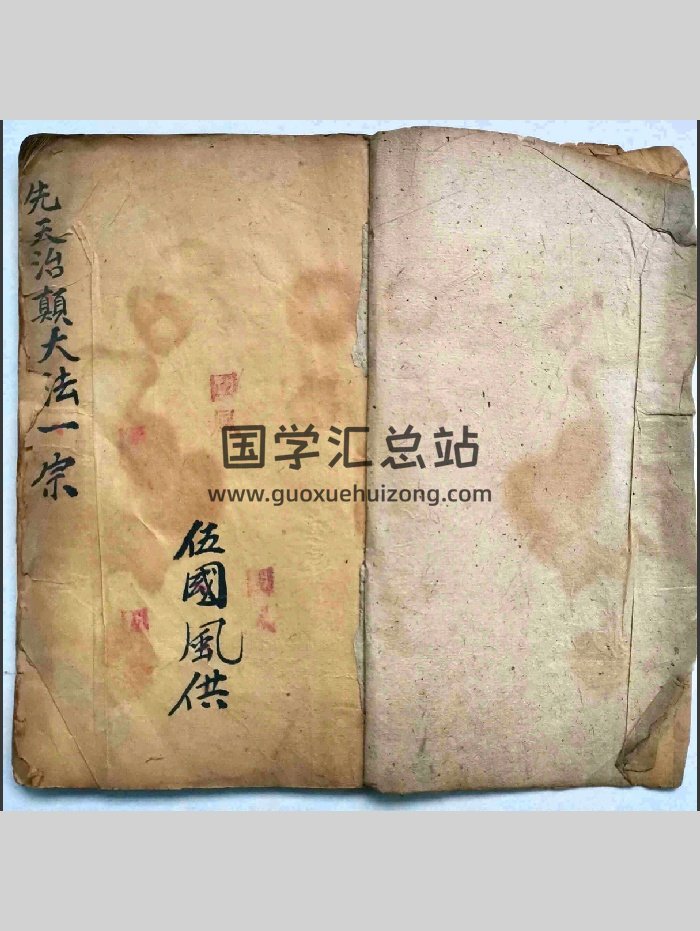 先天治顛大法一宗
伍國風供
国学汇总站
www.guoxuehuizong.com